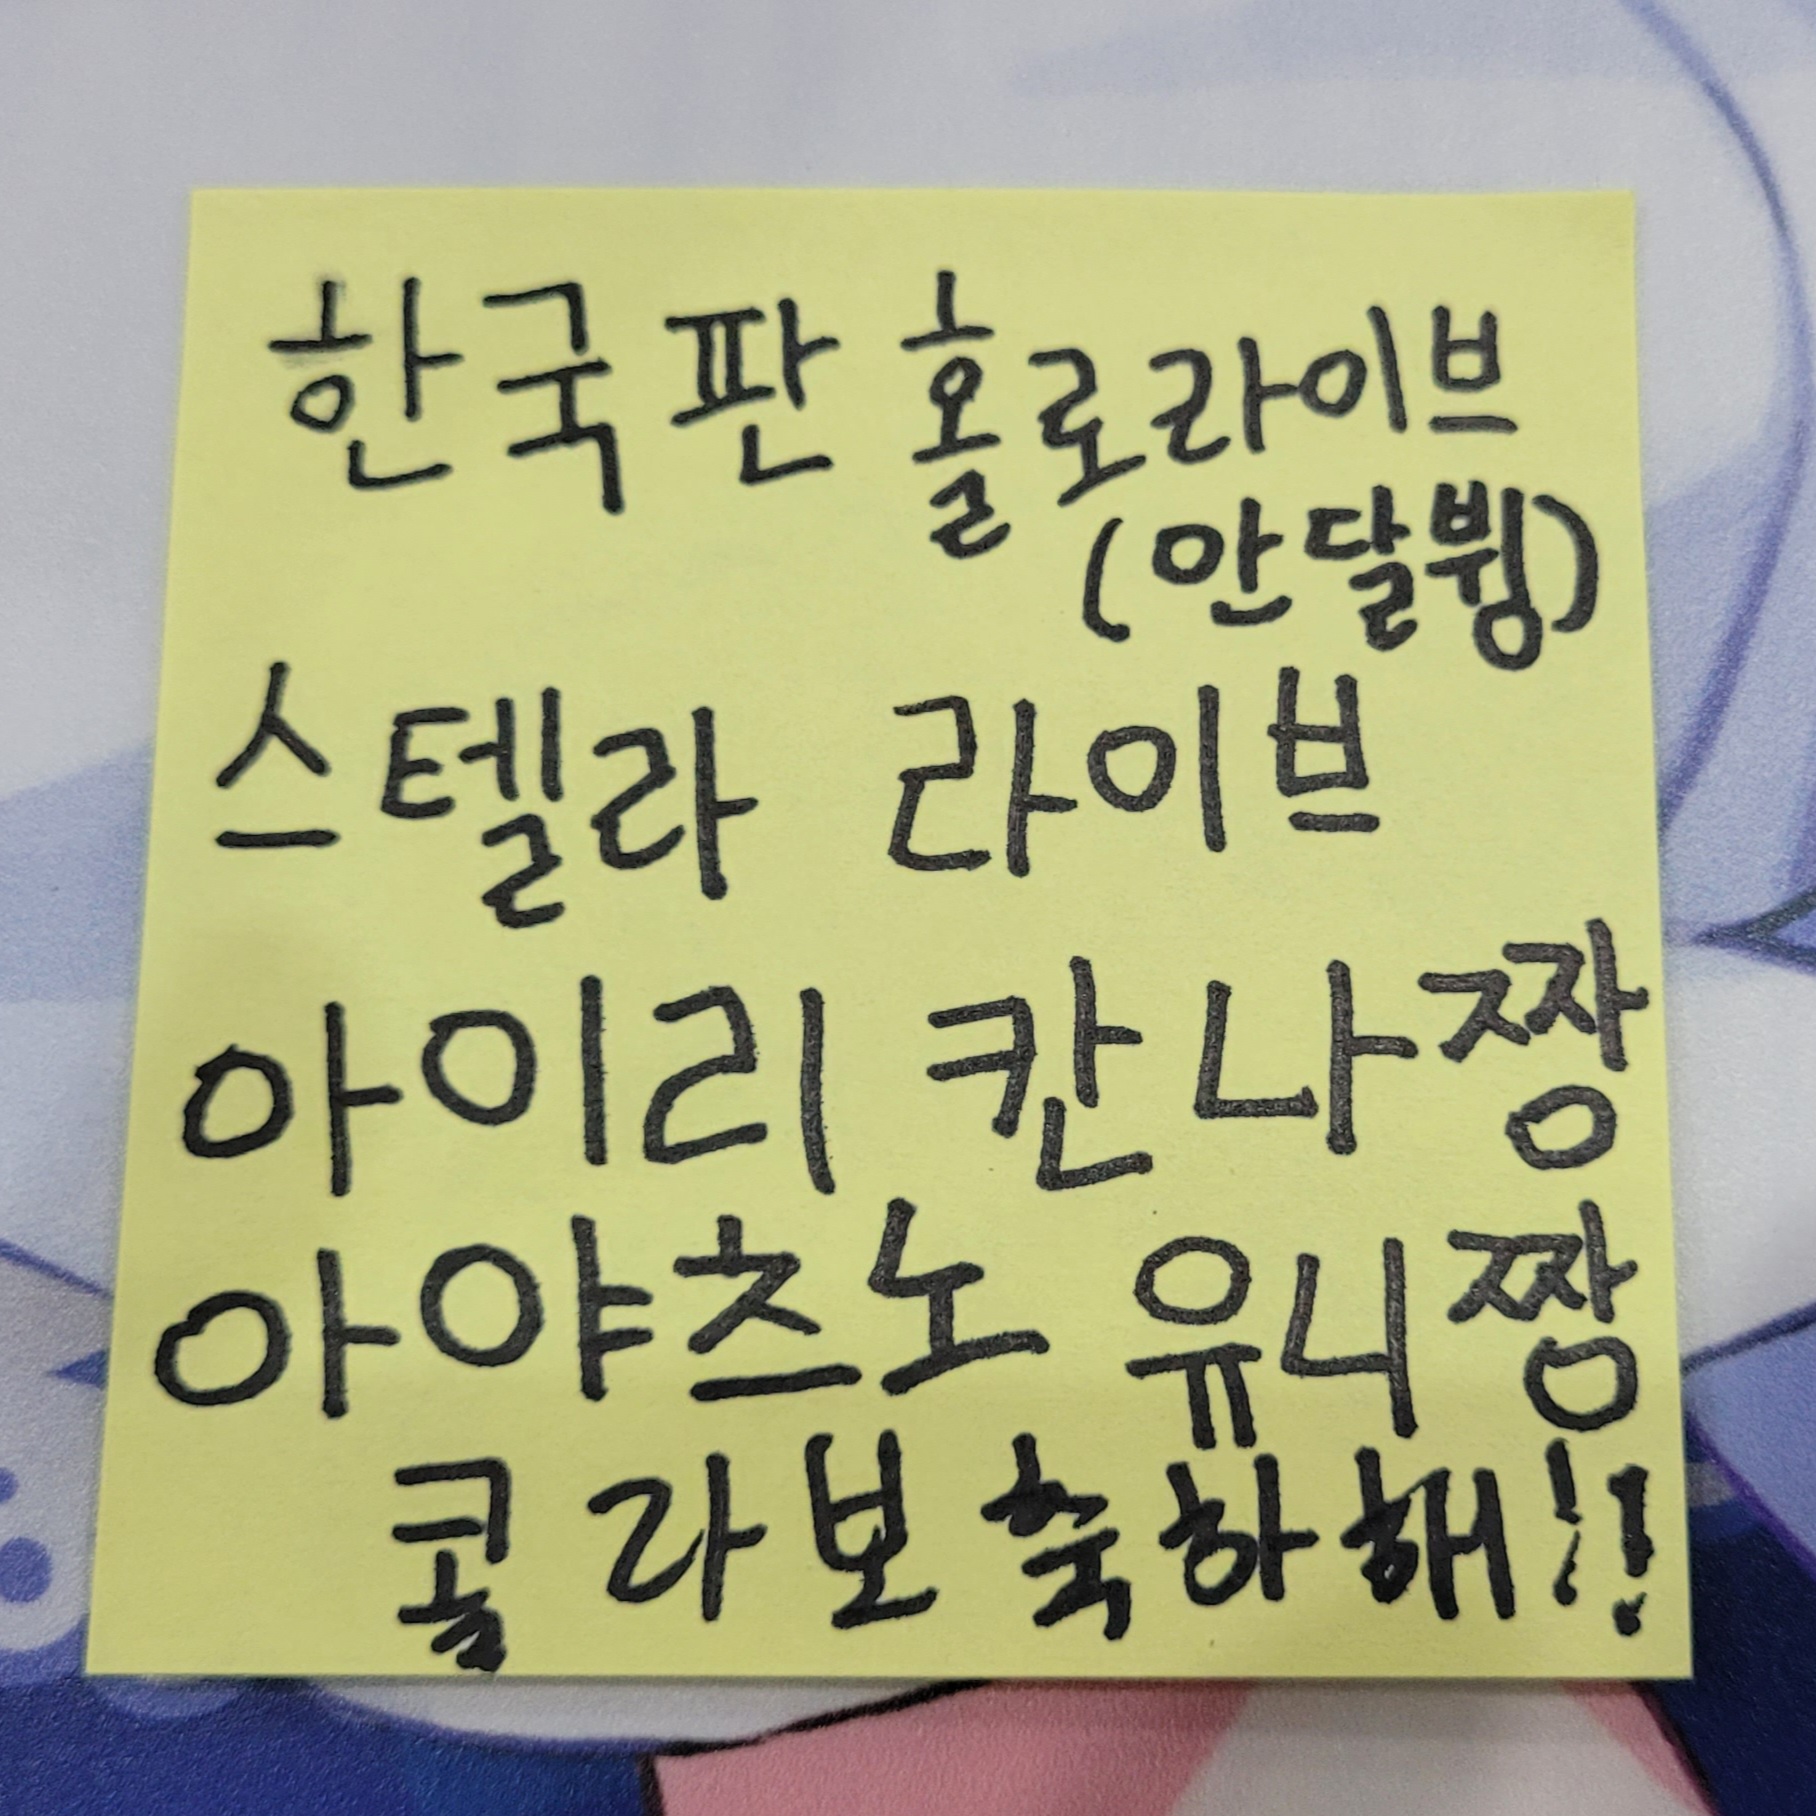 한국판 홀로라이브
(안달뷝)
스텔라 라이브
아이리 칸나짱
아야츠노 유니짱
콜라보 축하해!!